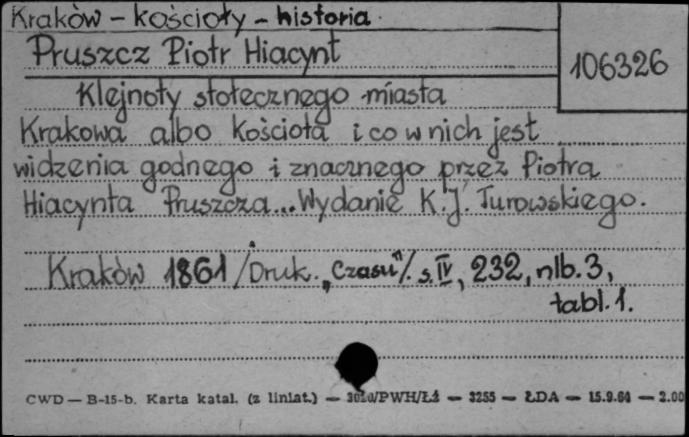 Kraków - kościoły - historia
Pruszcz Piotr Hiacynt
106326
Klejnoty stołecznego miasta
Krakowa albo Kościoła i co w nich jest
widzenia godnego i znacznego przez Piotra
Hiacynta Pruszcza... Wydanie K.J. Turowskiego.
Kraków 1861 /Druk. „Czasu"/. s. IV, 232, nlb. 3,
tabl. 1.
CWD — B-15-b. Karta katal. (z liniat.) — /PWH/Łź — 3255 — ŁDA — 15.9.64 — 2.00